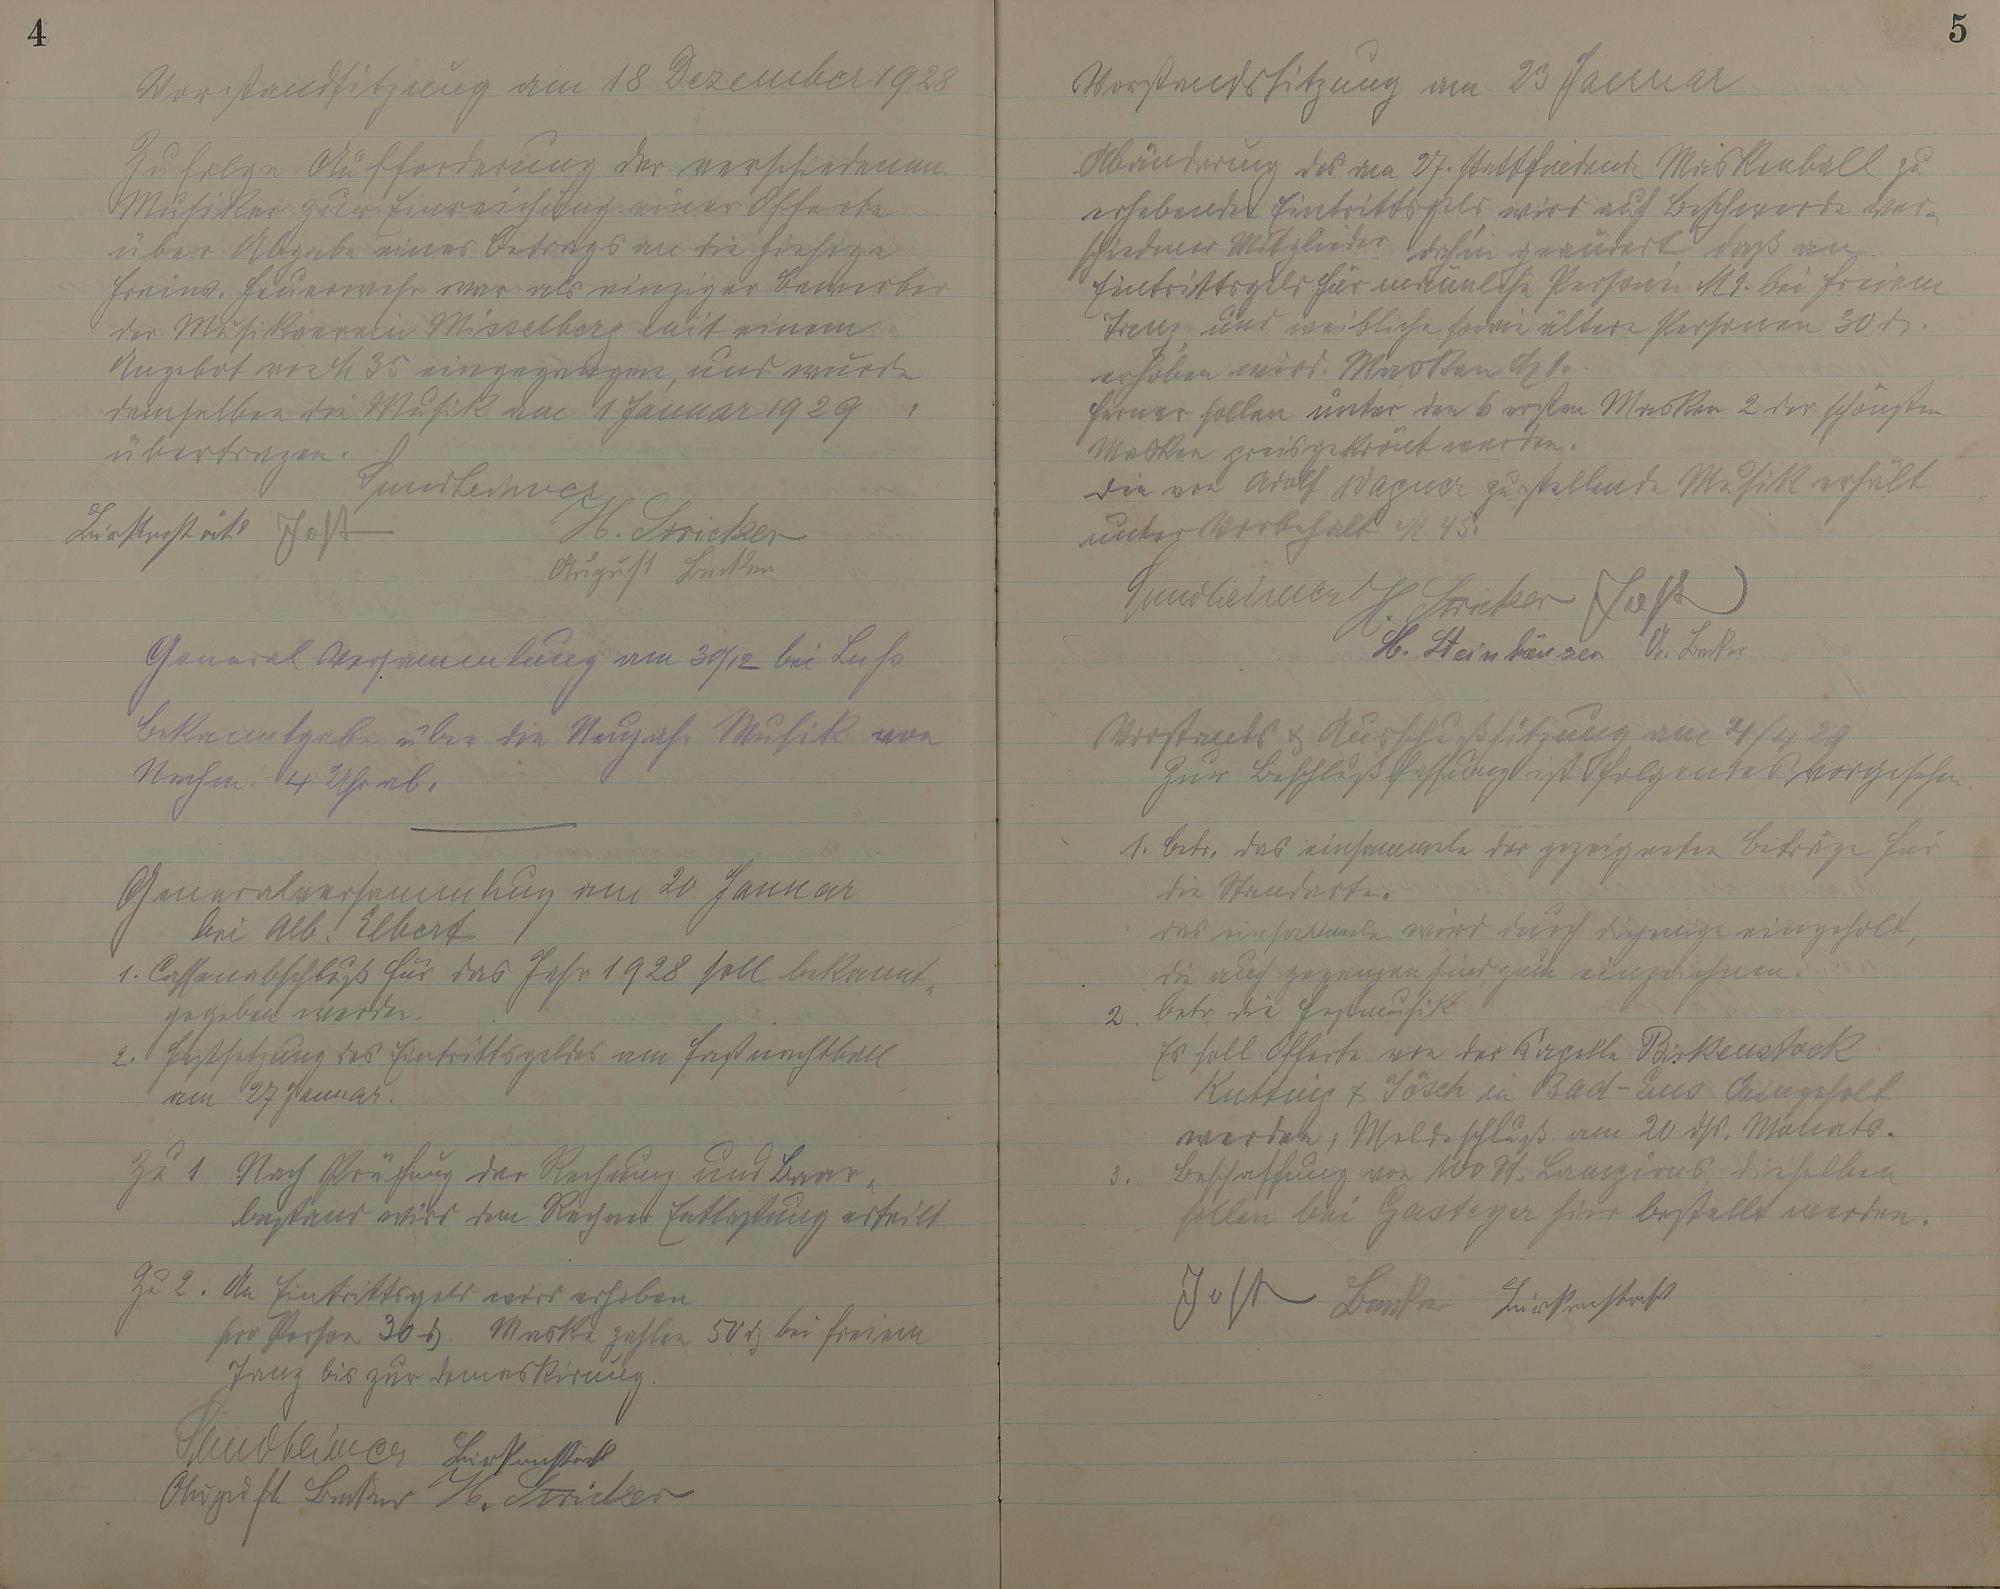 4
Vorstandsitzung am 18 Dezember 1928
Zufolge Aufforderung der verschiedenen
Musiker zur Einreichung einer Offerte
über Abgabe eines Betrags an die hiesige
Freiw. Feuerwehr war als einziger Bewerber
der Musikverein Misselberg mit einem
Angebot von M 35 eingegangen, und wurde
demselben die Musik am 1 Januar 1929
übertragen.
Sundheimer
Birkenstock Jost H. Stricker
August Becker
General Versammlung am 30/12 bei
Bekanntgabe über die Neujahr Musik von
Nachm. 4 Uhr ab.
Generalversammlung am 20 Januar
bei Alb. Elbert
1. Cassenabschluß für das Jahr 1928 soll bekannt-
gegeben werden.
2. Festsetzung des Eintrittsgeldes am Fastnachtball
am 27 Januar.
Zu 1 Nach Prüfung der Rechnung und Baar-
bestand wird dem Rechner Entlastung erteilt
Zu 2. An Eintrittsgeld wird erhoben
pro Person 30 ₰. Maske zahlen 50 ₰ bei freiem
Tanz bis zur Demaskirung.
Sundheimer Birkenstock
August Becker H. Stricker
5
Vorstandssitzung am 23 Januar
Abänderung des am 27. stattfindende Maskenball zu
erhebendes Eintrittsgeld wird auf Beschwerde ver-
schiedener Mitglieder dahin geändert daß an
Eintrittsgeld für männliche Personen M 1. bei freiem
Tanz und weibliche sowie ältere Personen 30 ₰.
erhoben wird. Masken
Ferner sollen unter den 6 ersten Masken 2 der schönsten
Masken preisgekrönt werden.
Die von Adolf Wagner zustellende Musik erhält
unter Vorbehalt M 45.
Sundheimer H. Stricker Jost
H. Steinhäuser A. Becker
Vorstands & Ausschußsitzung am 4/4 29
Zur Beschlußfassung ist folgendes vorgesehn.
1. Betr. das einsammeln der gezeigneten Beträge für
die Standarte.
Das einsammeln wird durch diejenige eingeholt,
die auch gegangen sind zum einzeichnen.
2. Betr die Festmusik
Es soll Offerte von der Kapelle Birkenstock
Kutting & Jösch in Bad-Ems eingeholt
werden, Meldeschluß am 20 ds. Monats.
3. Beschaffung von 100 St. Lampions, dieselben
sollen bei Gasteyer hier bestellt werden.
Jost Becker Birkenstock